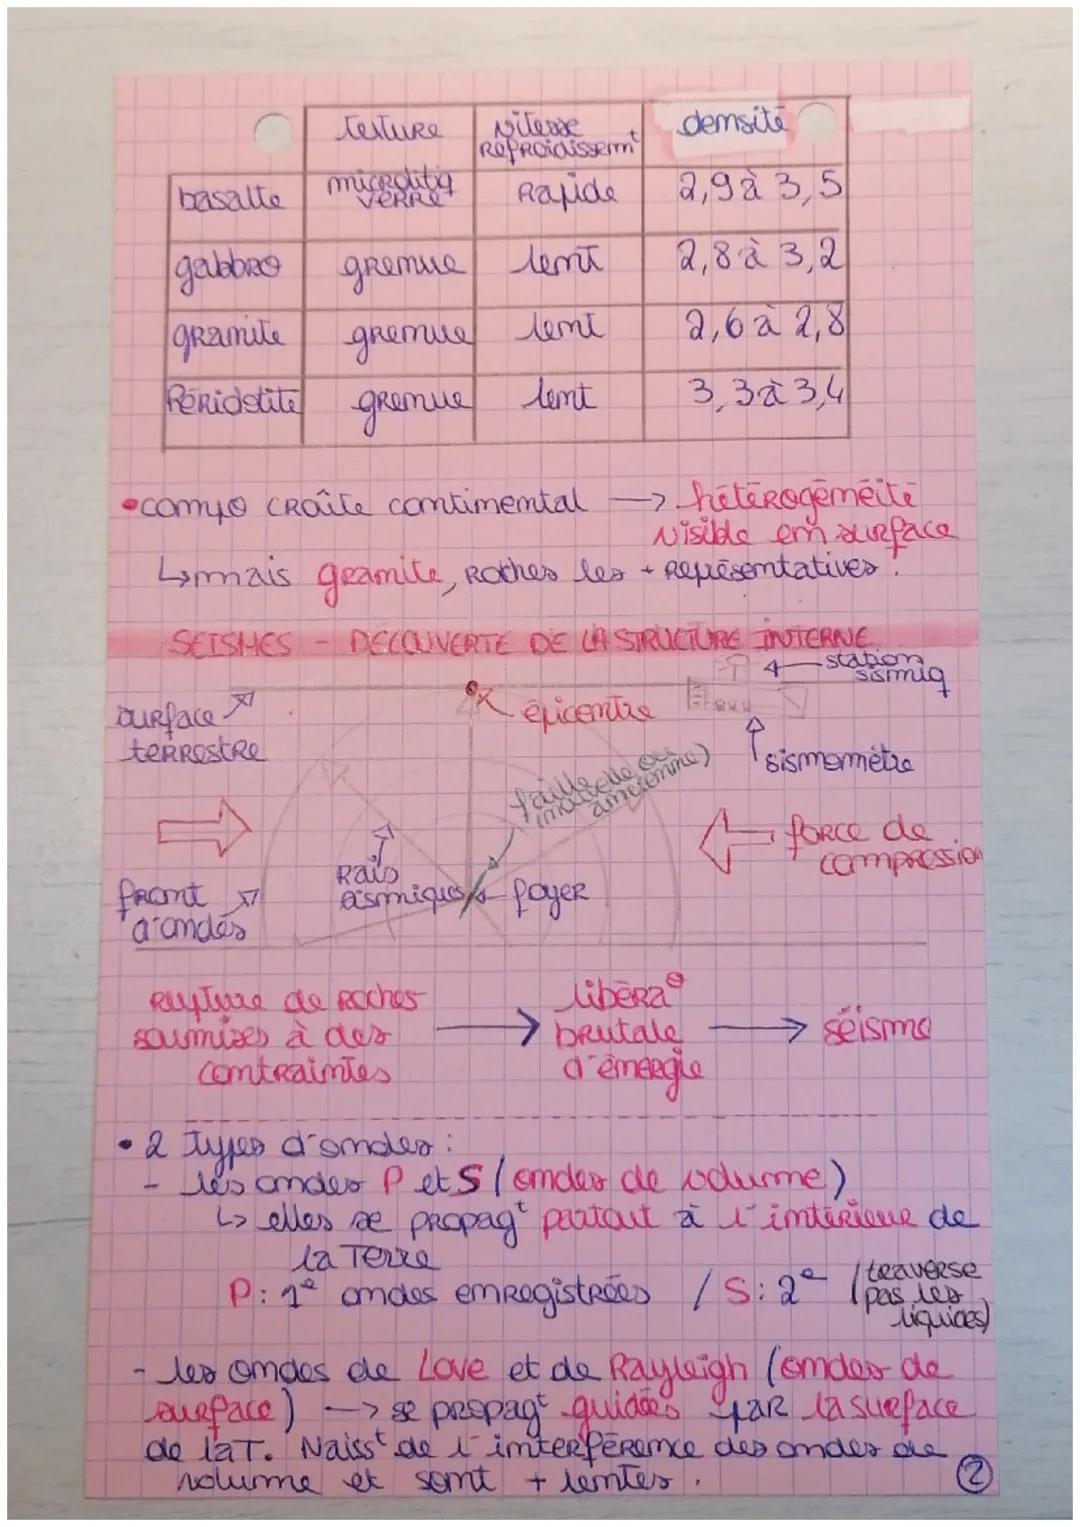 texture vitesse refroidissemt densité
basalte microlitiq verre Rapide 2,9 à 3,5
gabbro grenue lent 2,8 à 3,2
granite grenue lent 2,6 à 2,8
Péridotite grenue lent 3,3 à 3,4
• compo croûte continental → hétérogénéité
visible en surface
↳ mais granite, roches les + représentatives.
SEISMES - DECOUVERTE DE LA STRUCTURE INTERNE
station sismiq
surface terrestre
épicentre
sismomètre
faille (nouvelle ou ancienne)
force de compression
Rais sismiques
foyer
front d'ondes
Rupture de roches soumises à des contraintes → libéra° brutale d'énergie → séisme
• 2 types d'ondes :
- les ondes P et S (ondes de volume)
↳ elles se propagt partout à l'intérieur de
la Terre
P: 1e ondes enregistrées / S: 2e (traverse pas les liquides)
- les ondes de Love et de Rayleigh (ondes de
surface) → se propagt guidées par la surface
de la T. Naisst de l'interférence des ondes de
volume et sont + lentes.
2